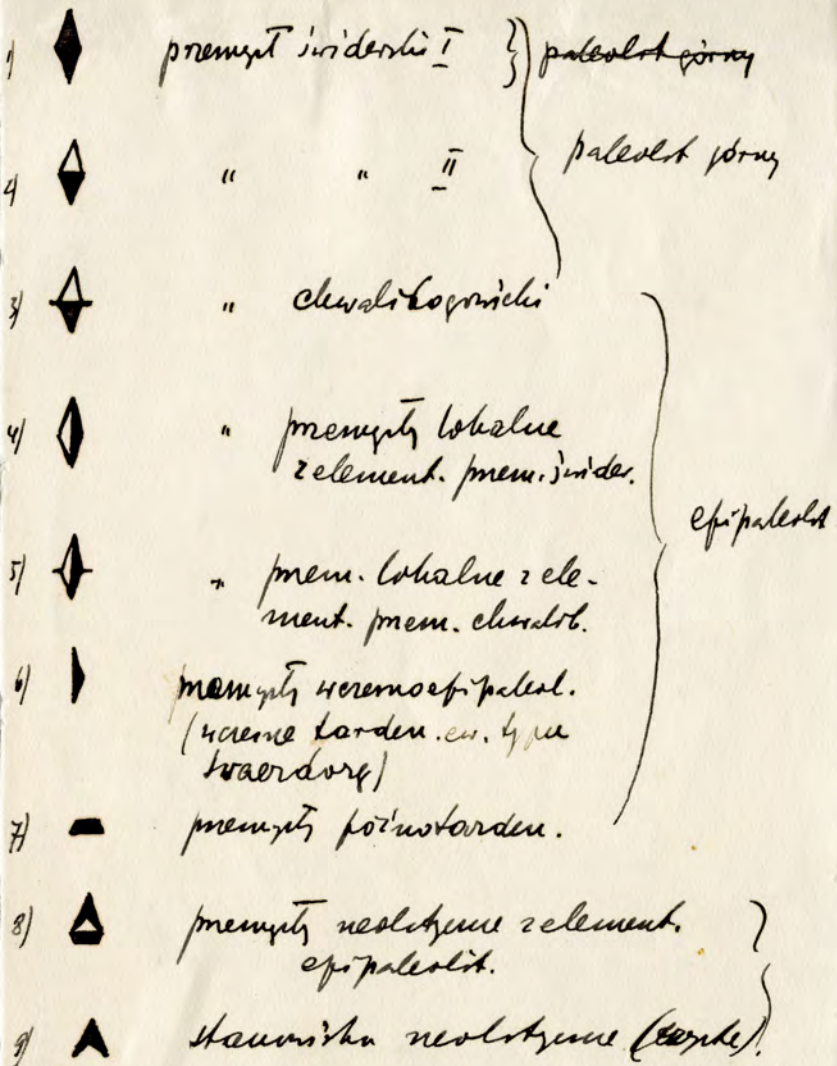 1) przemysł świderski I
paleolit górny
2) " " II
paleolit górny
3) " chwalibogowicki
4) " przemysły lokalne
z element. przem. świder.
5) " przem. lokalne z ele-
ment. przem. chwalib.
epipaleolit
6) przemysły wczesnoepipaleol.
(wczesne tarden. ew. typu
svaerdborg)
7) przemysły późnotarden.
8) przemysły neolityczne z element.
epipaleolit.
9) stanowiska neolityczne